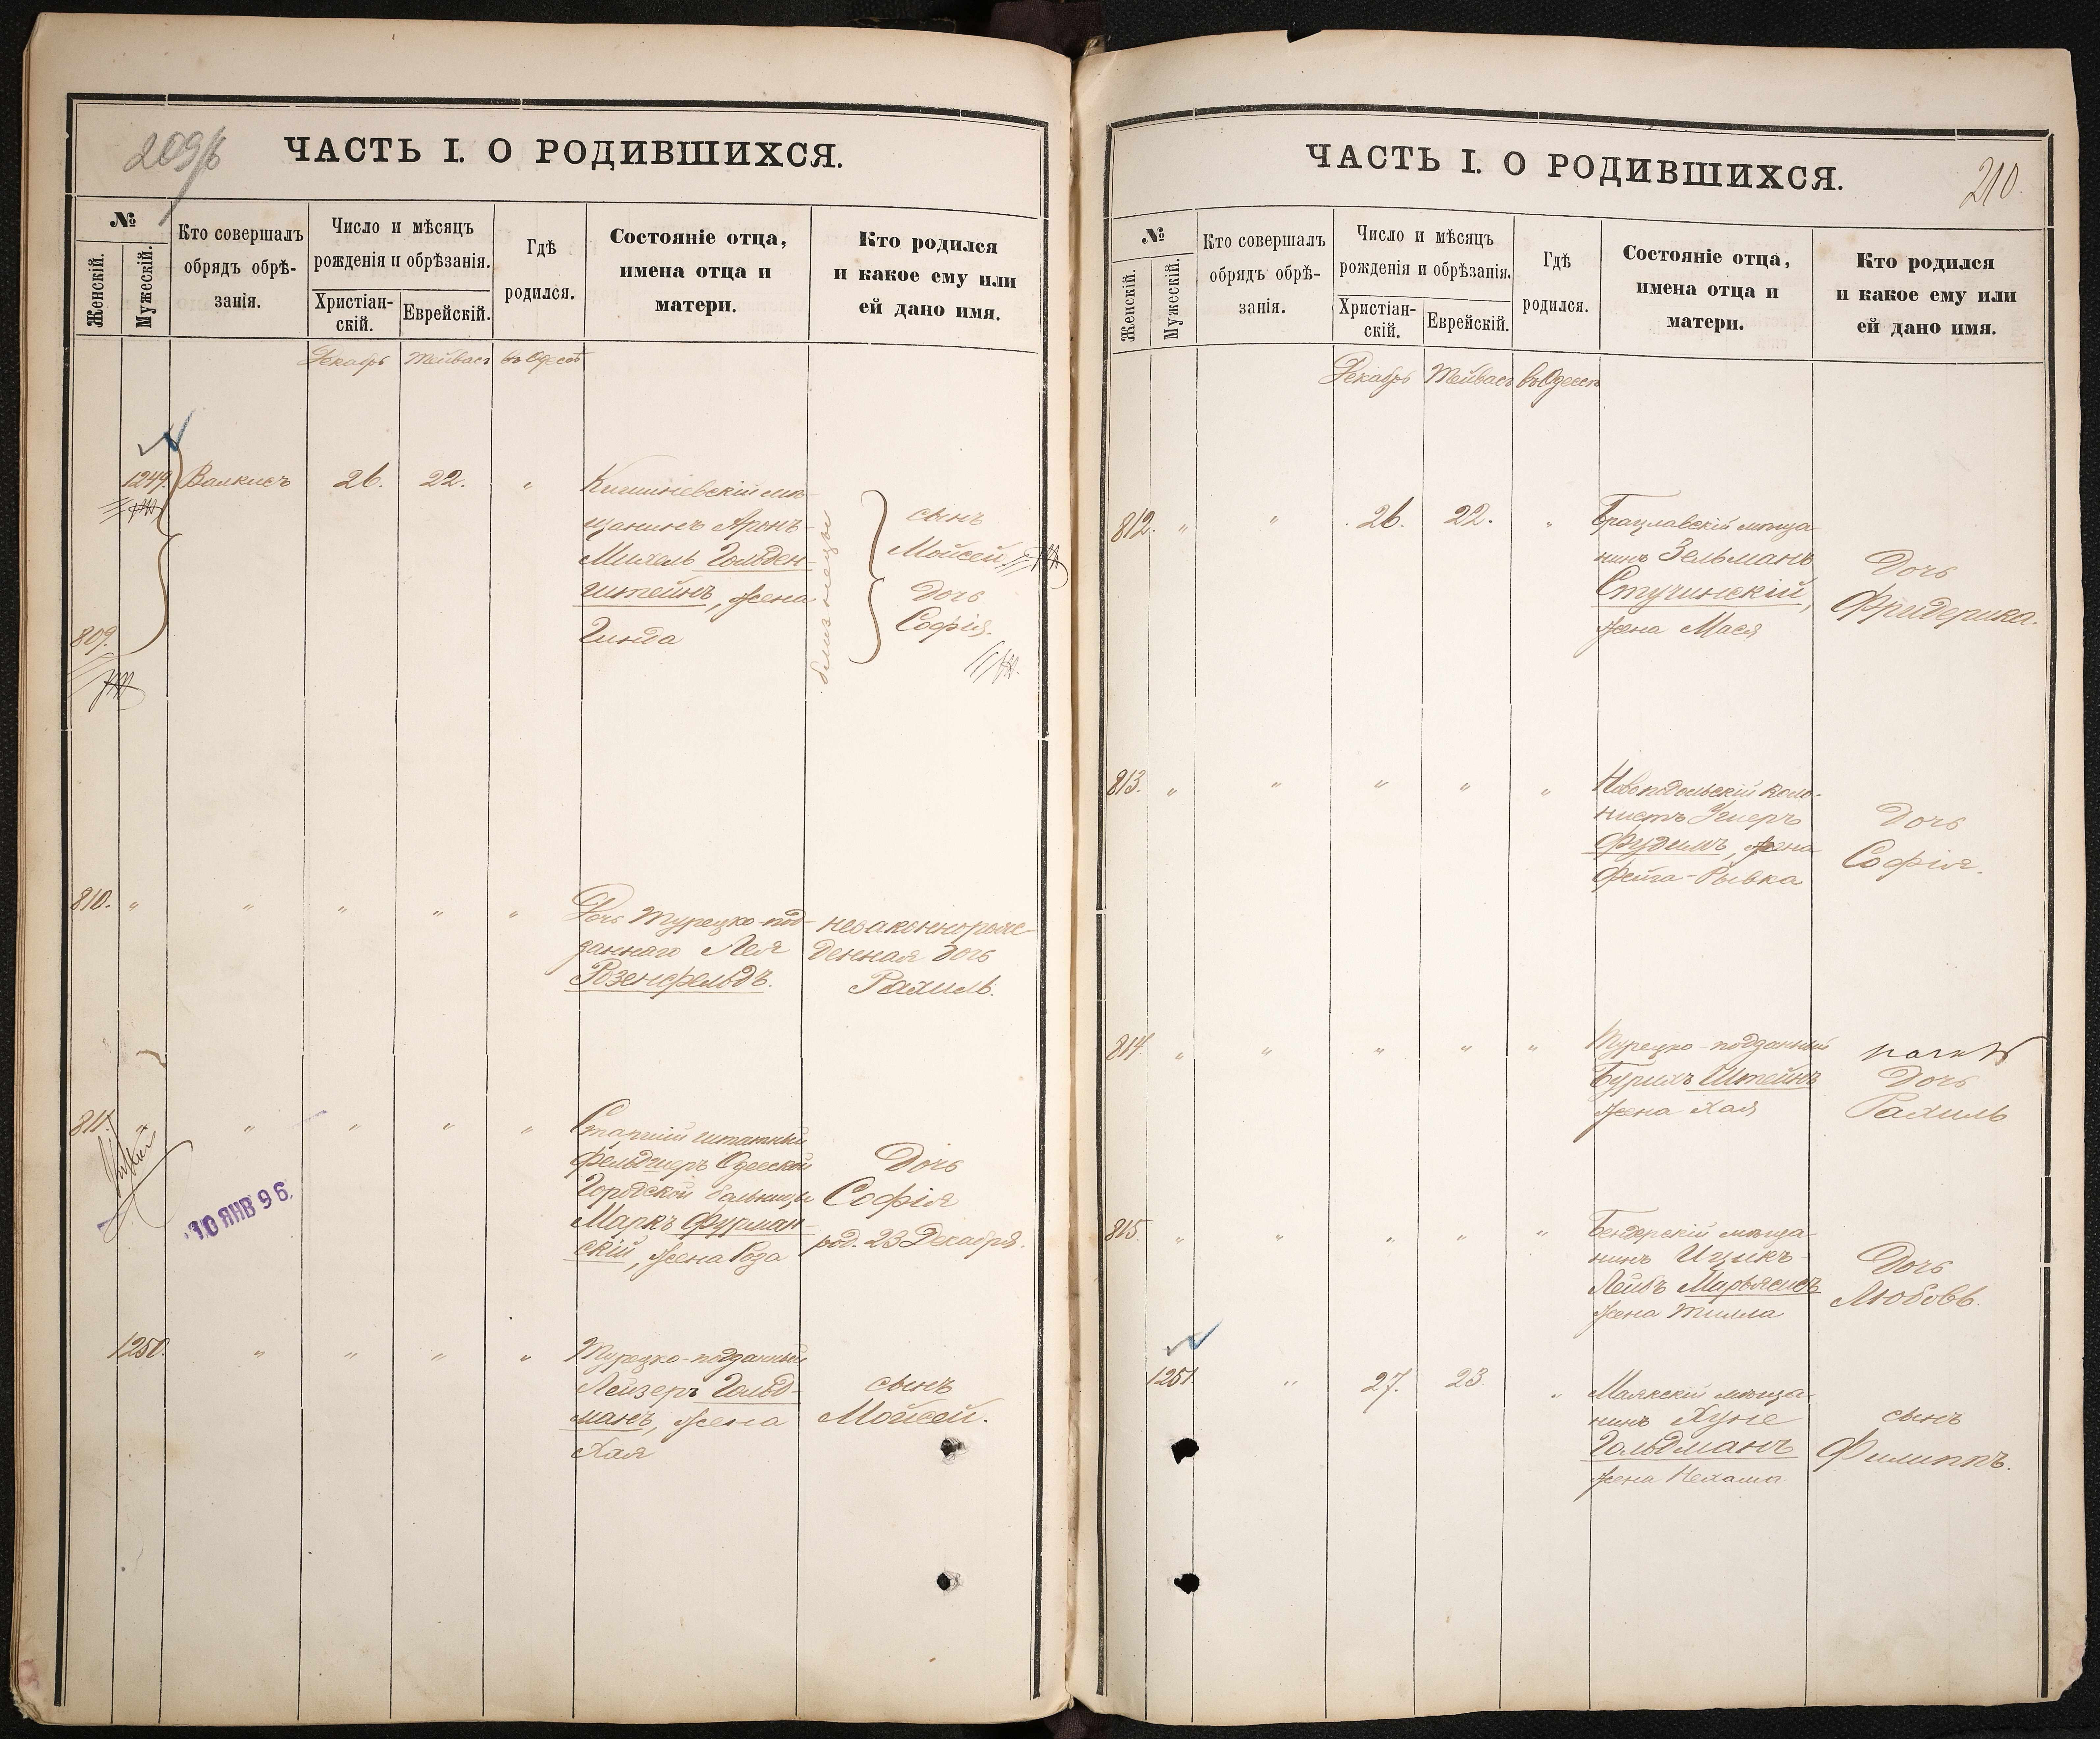 209/б
ЧАСТЬ I. О РОДИВШИХСЯ.
№
Женскій.
Мужескій.
Кто совершалъ
обрядъ обрѣ-
занія.
Число и мѣсяцъ
рожденія и обрѣзанія.
Христіан-
скій.
Еврейскій.
Гдѣ
родился.
Состояніе отца,
имена отца и
матери.
Кто родился
и какое ему или
ей дано имя.
Декабрь Тейвасъ въ Одессѣ
1249. Валкисъ 26. 22. "
809.
Кишиневскій мѣ-
щанинъ Аронъ-
Михель Гольден-
штейнъ, жена
Гинда
близнецы
сынъ
Мойсей.
дочь
Софія.
810. " " " " "
Дочь Турецко-под-
даннаго Лея
Розенфельдъ.
незаконнорож-
денная дочь
Рахиль.
811. " " " " "
Старшій штатный
фельдшеръ Одесской
Городской больницы
Маркъ Фурман-
скій, жена Роза
Дочь
Софія
род. 23 Декабря.
10 ЯНВ 96.
1250. " " " "
Турецко-подданный
Лейзеръ Гольд-
манъ, жена
Хая
сынъ
Мойсей.
ЧАСТЬ I. О РОДИВШИХСЯ.
210.
№
Женскій.
Мужескій.
Кто совершалъ
обрядъ обрѣ-
занія.
Число и мѣсяцъ
рожденія и обрѣзанія.
Христіан-
скій.
Еврейскій.
Гдѣ
родился.
Состояніе отца,
имена отца и
матери.
Кто родился
и какое ему или
ей дано имя.
Декабрь Тейвасъ въ Одессѣ
812. " " 26. 22. "
Брацлавскій мѣща-
нинъ Зельманъ
Стучинскій,
жена Мася
Дочь
Фридерика.
813. " " " " "
Новоподольскій коло-
нистъ Ушеръ
Фудимъ, жена
Фейга-Рывка
Дочь
Софія.
814. " " " " "
Турецко-подданный
Бурихъ Штейнъ
жена Хая
Дочь
Рахиль
815. " " " " "
Бендерскій мѣща-
нинъ Ицикъ-
Лейбъ Марьясисъ
жена Тилла
Дочь
Любовь.
1251. " 27. 23. "
Маякскій мѣща-
нинъ Хуне
Гольдманъ
жена Нехама
сынъ
Филиппъ.